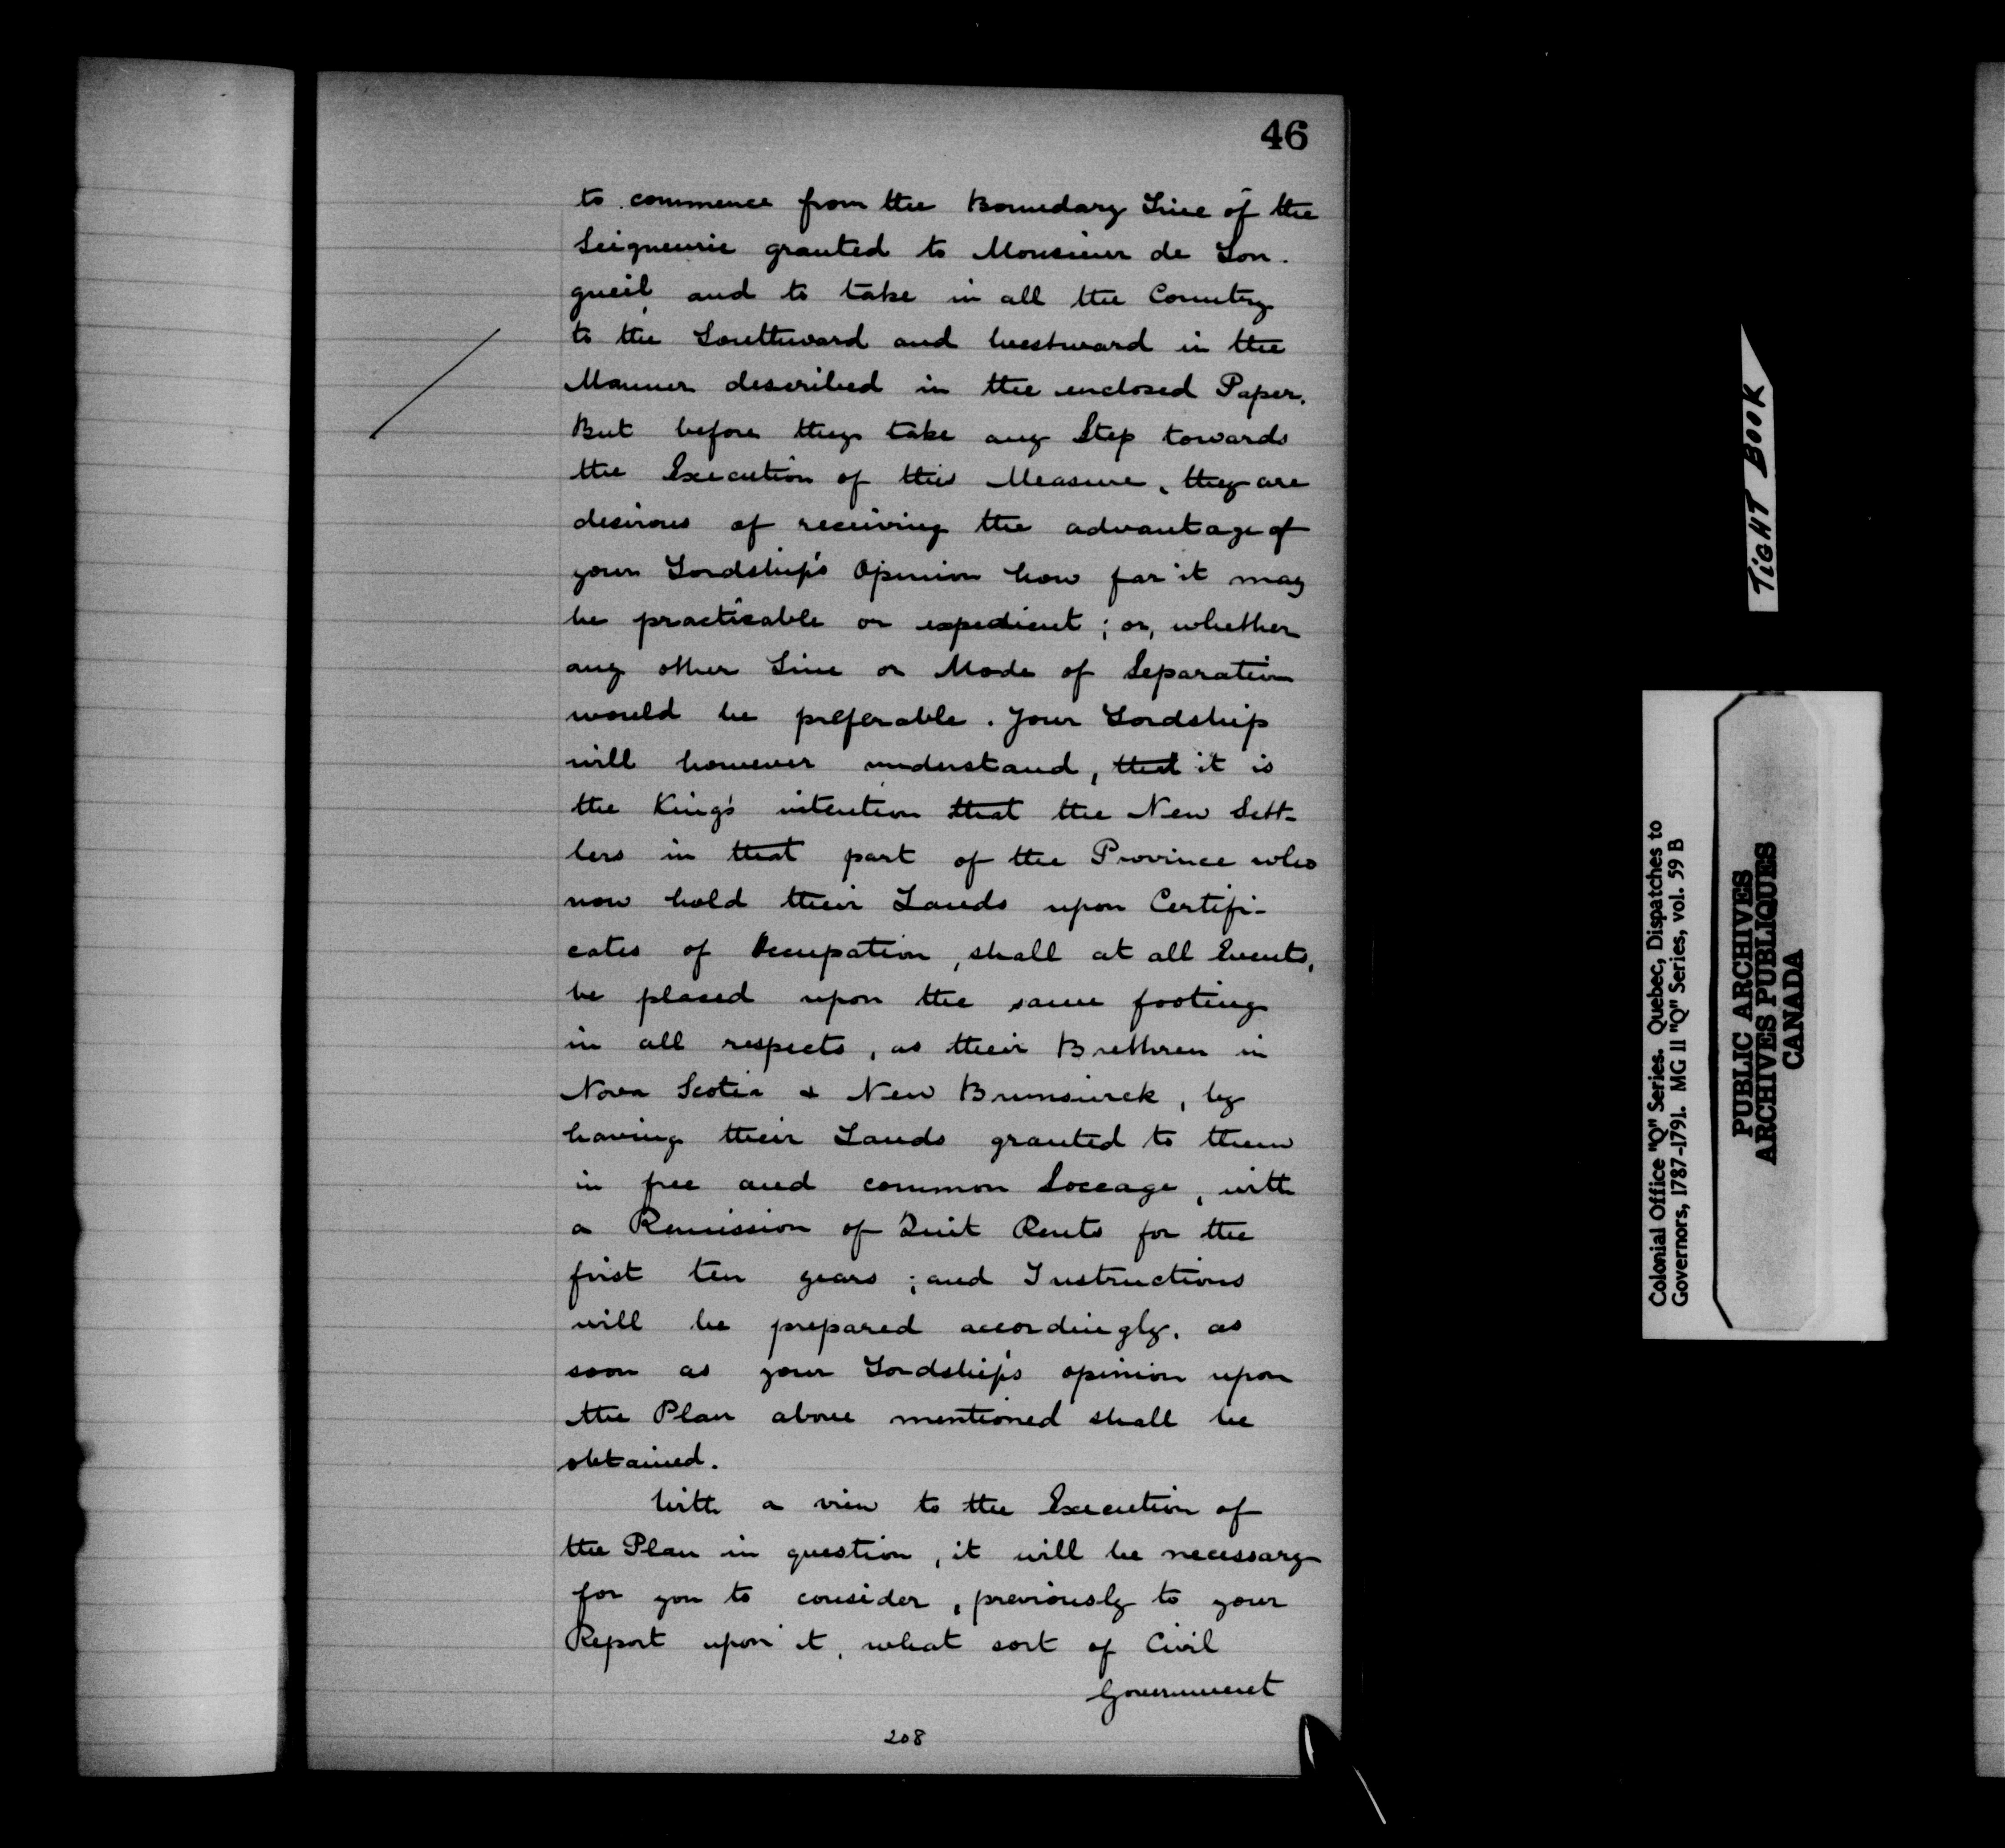 46
to commence from the Boundary Line of the
Seigneurie granted to Monsieur de Lon-
gueil, and to take in all the Country
to the Southward and Westward in the
Manner described in the enclosed Paper.
But before they take any Step towards
the Execution of this Measure, they are
desirous of receiving the advantage of
your Lordship's Opinion how far it may
be practicable or expedient; or, whether
any other Line or Mode of Separation
would be preferable. Your Lordship
will however understand, that it is
the King's intention that the New Sett-
lers in that part of the Province who
now hold their Lands upon Certifi-
cates of Occupation, shall at all Events,
be placed upon the same footing
in all respects, as their Brethren in
Nova Scotia & New Brunswick, by
having their Lands granted to them
in free and common Soccage, with
a Remission of Quit Rents for the
first ten years; and Instructions
will be prepared accordingly, as
soon as your Lordship's opinion upon
the Plan above mentioned shall be
obtained.
With a view to the Execution of
the Plan in question, it will be necessary
for you to consider, previously to your
Report upon it, what sort of Civil
Government
208
TIGHT BOOK
Colonial Office "Q" Series. Quebec, Dispatches to
Governors, 1787-1791. MG 11 "Q" Series, vol. 59 B
PUBLIC ARCHIVES
ARCHIVES PUBLIQUES
CANADA